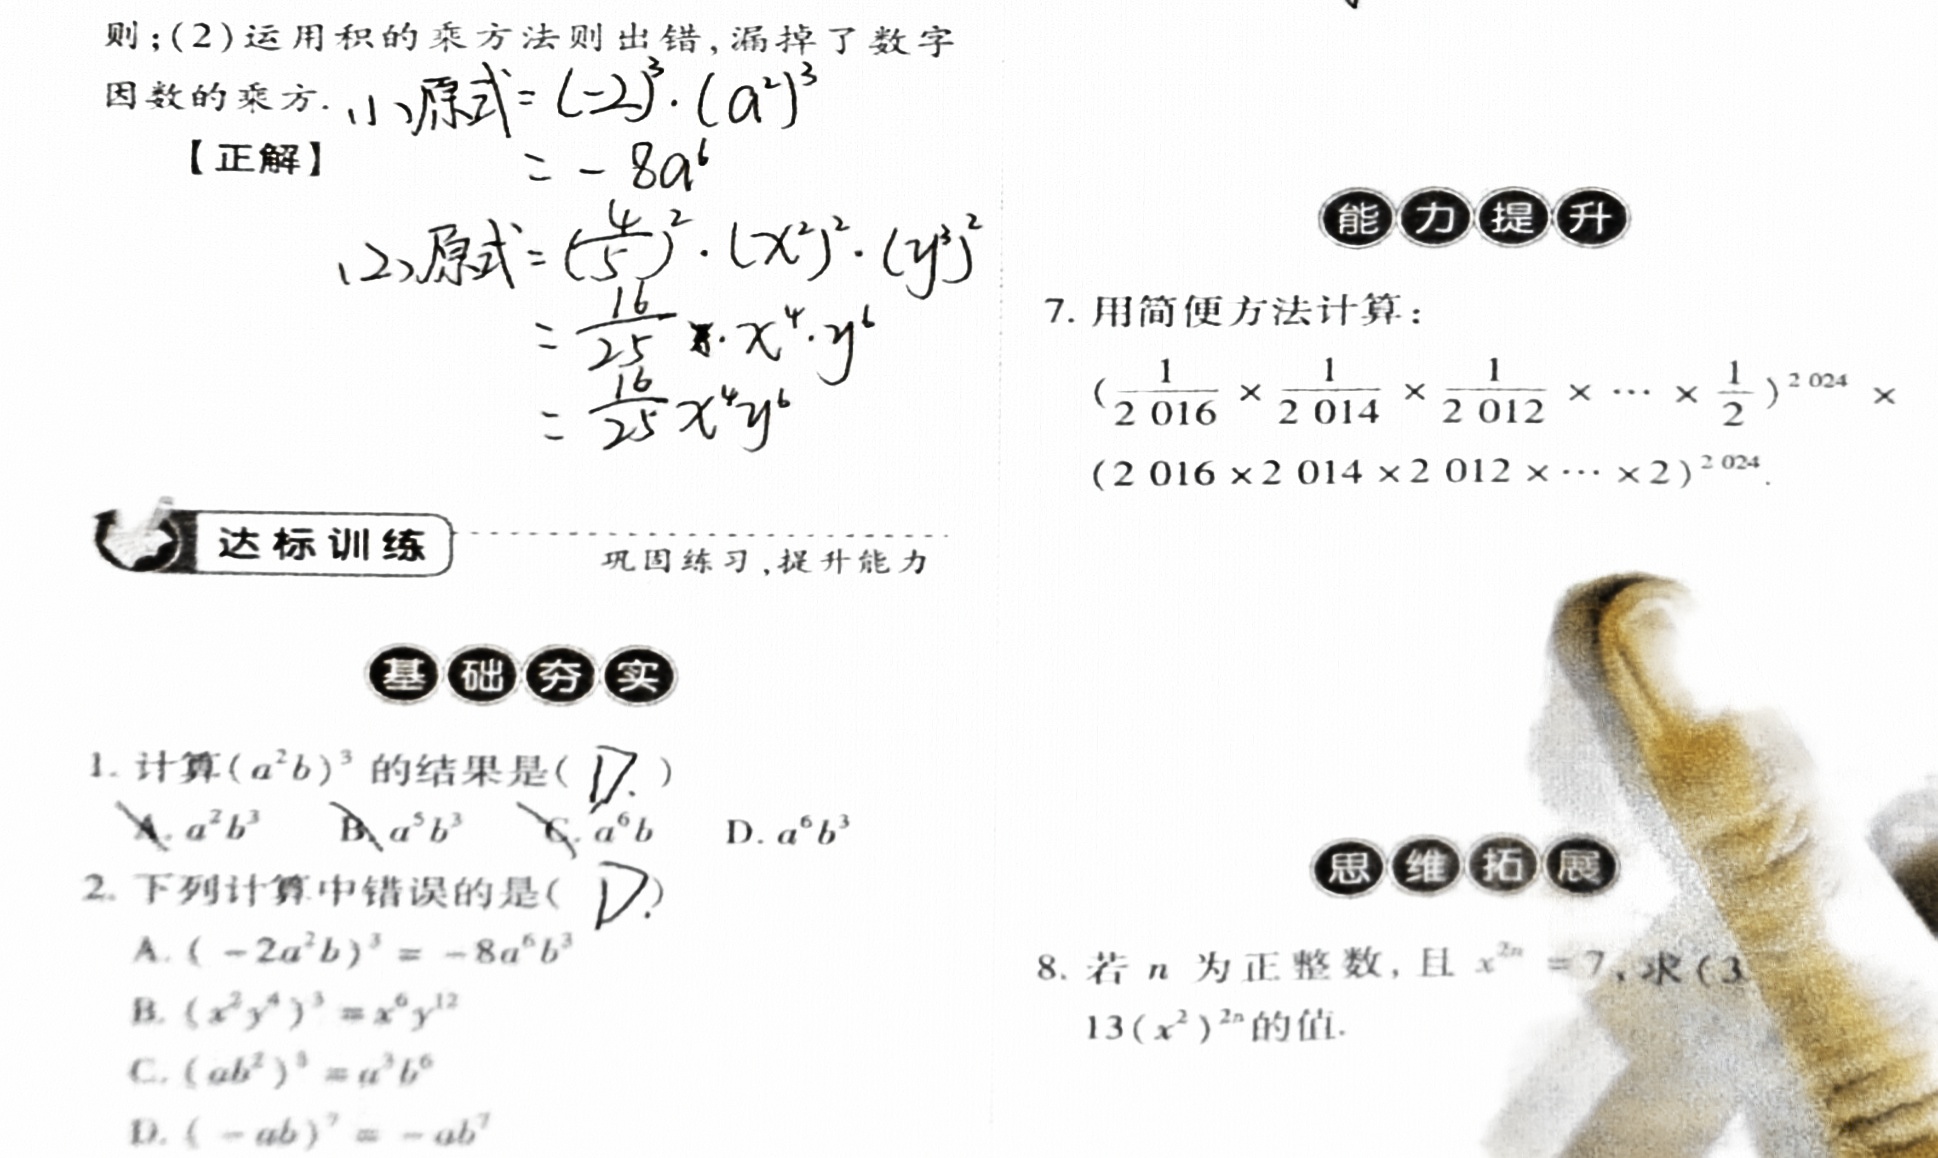 则;(2)运用积的乘方法则出错,漏掉了数字
因数的乘方. (1)原式=(-2)³·(a²)³
【正解】 = -8a⁶
(2)原式=(4/5)²·(x²)²·(y³)²
= 16/25 ·x⁴·y⁶
= 16/25 x⁴y⁶
达标训练 巩固练习,提升能力
基础夯实
1. 计算(a²b)³的结果是( D. )
A. a²b³ B. a⁵b³ C. a⁶b D. a⁶b³
2. 下列计算中错误的是( D. )
A. (-2a²b)³=-8a⁶b³
B. (x²y⁴)³=x⁶y¹²
C. (ab²)³=a³b⁶
D. (-ab)⁷=-ab⁷
能力提升
7. 用简便方法计算:
(1/2 016 × 1/2 014 × 1/2 012 × … × 1/2)² ⁰²⁴ ×
(2 016×2 014×2 012×…×2)² ⁰²⁴.
思维拓展
8. 若 n 为正整数,且 x²ⁿ=7,求(3
13(x²)²ⁿ的值.